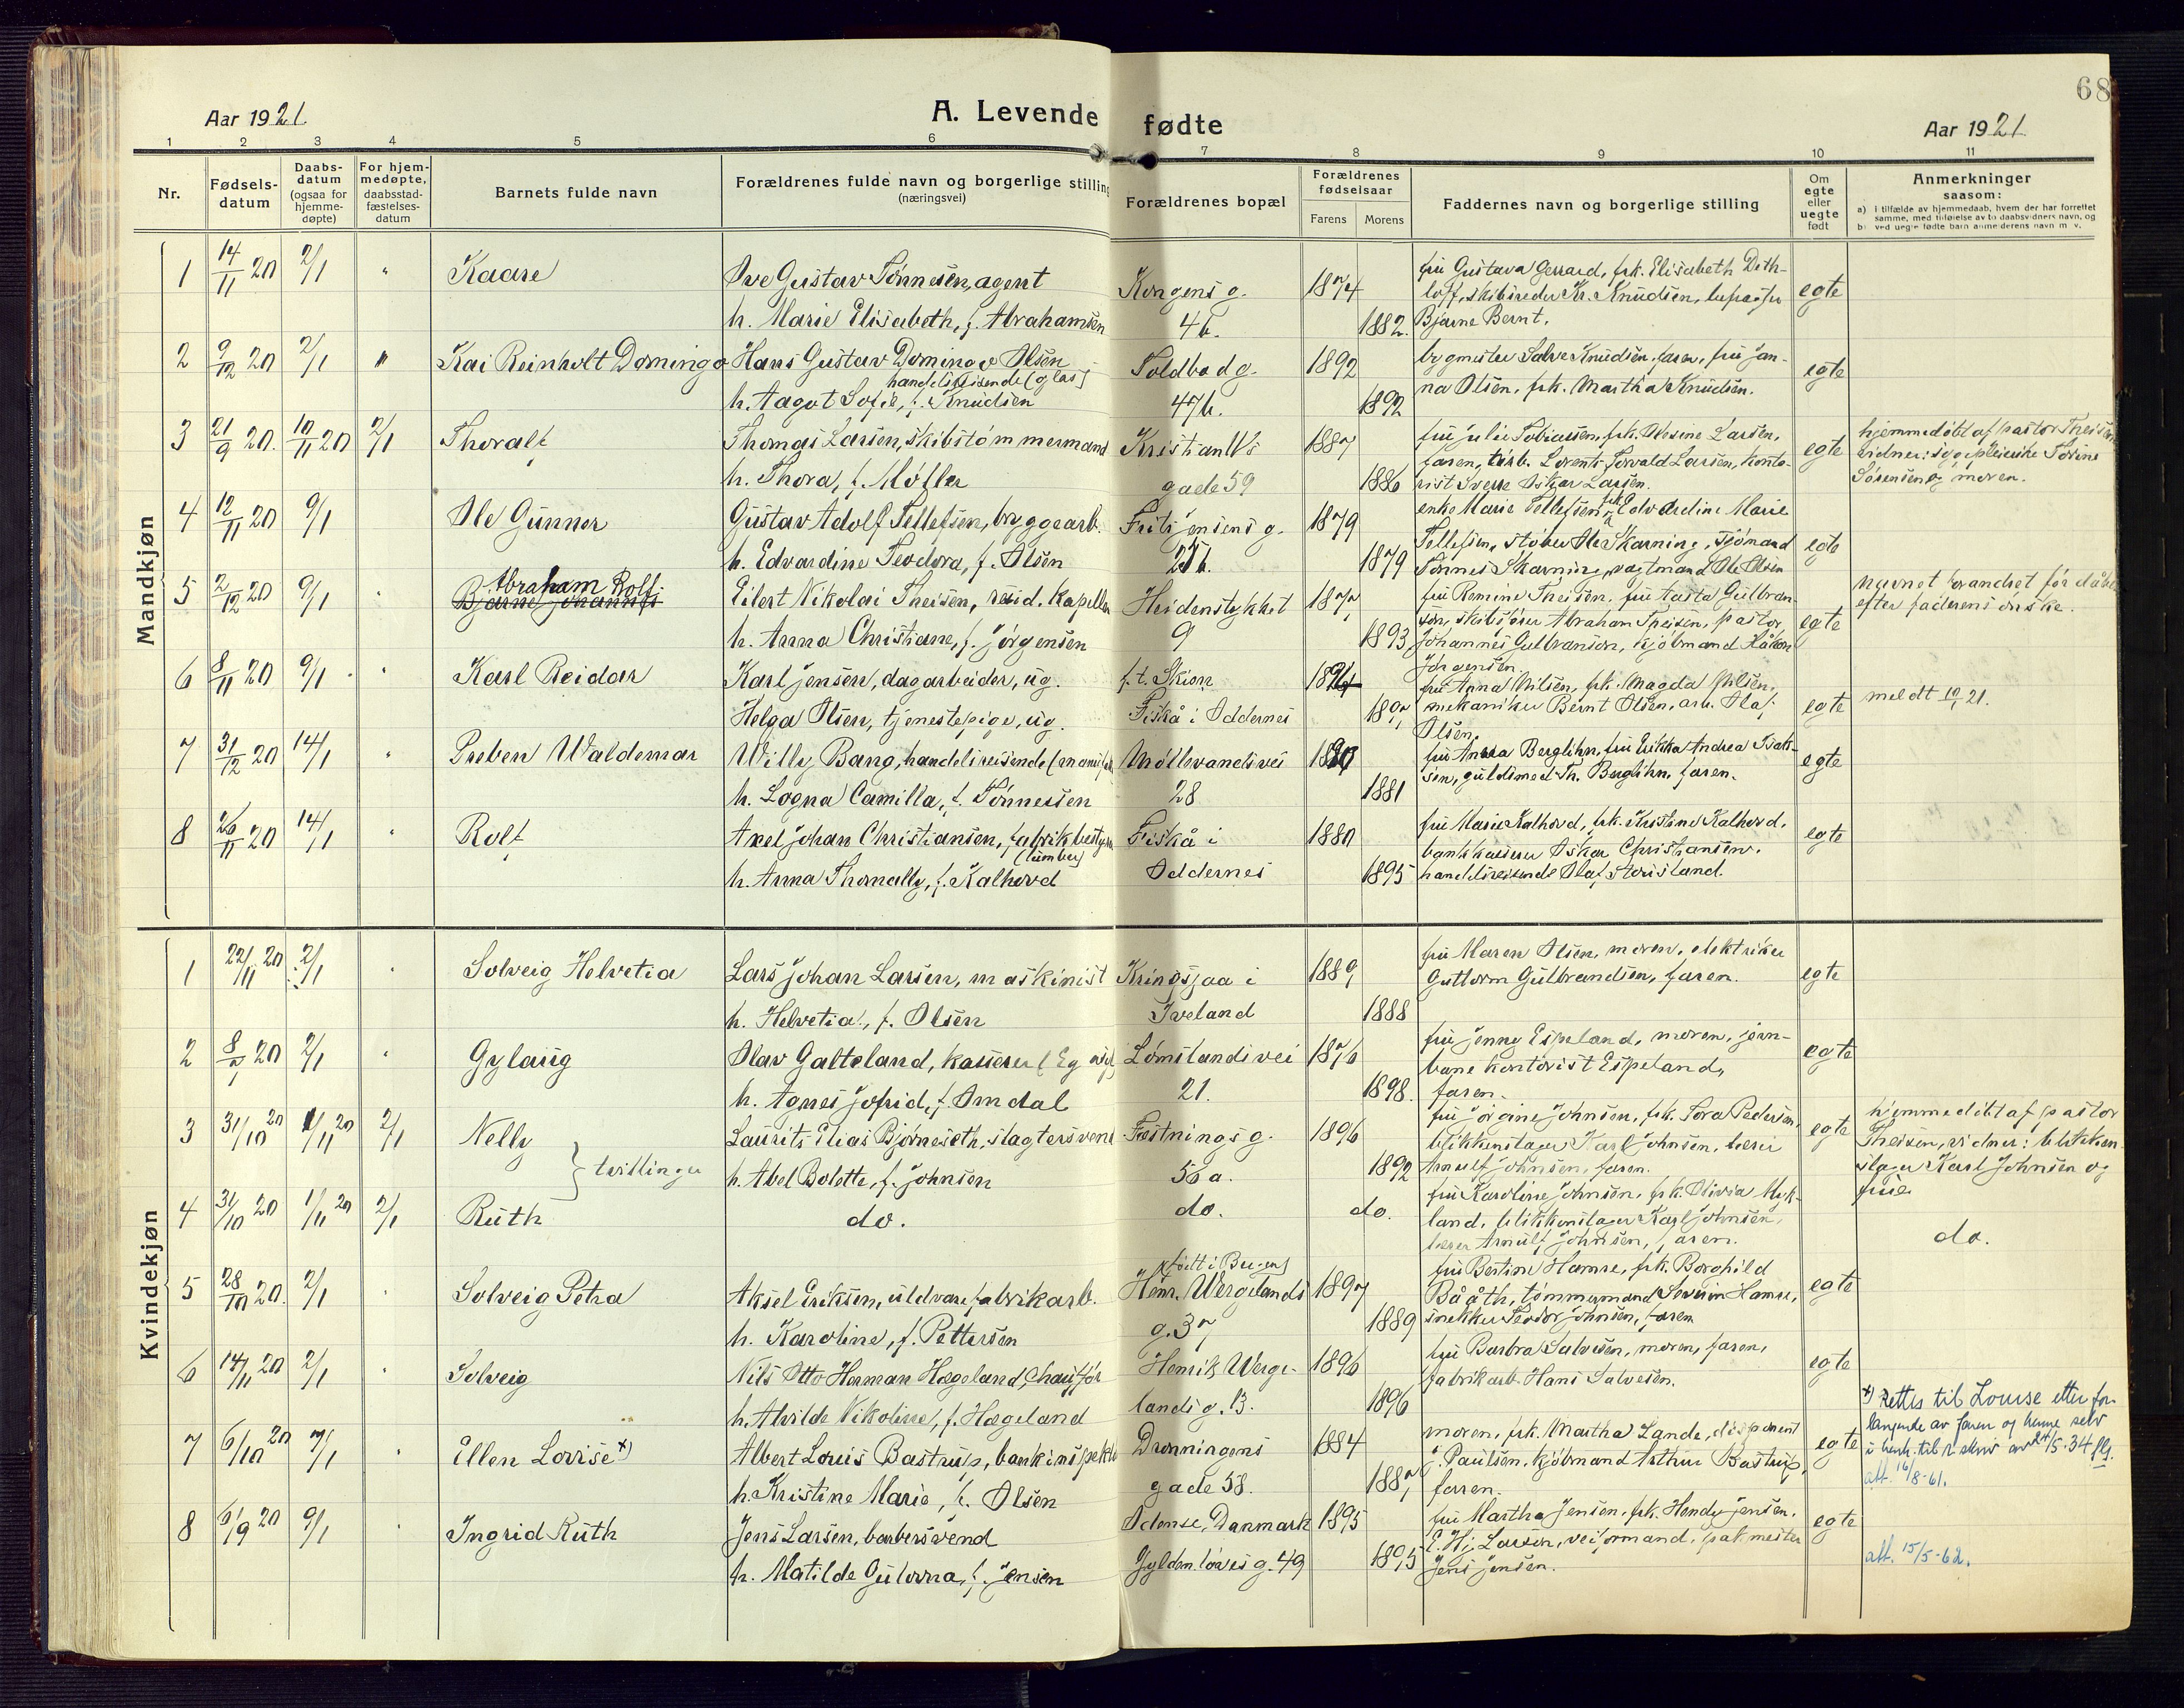 68
Aar 1921.
A. Levende fødte
Aar 1921
1 2 3 4 5 6 7 8 9 10 11
Nr.
Fødsels-
datum
Daabs-
datum
(ogsaa for
hjemme-
døpte)
For hjem-
medøpte,
daabsstad-
fæstelses-
datum
Barnets fulde navn
Forældrenes fulde navn og borgerlige stilling
(næringsvei)
Forældrenes bopæl
Forældrenes
fødselsaar
Farens Morens
Faddernes navn og borgerlige stilling
Om
egte
eller
uegte
født
Anmerkninger
saasom:
a) i tilfælde av hjemmedaab, hvem der har forrettet
samme, med tilføielse av to daabsvidners navn, og
b) ved uegte fødte barn anmelderens navn m. v.
Mandkjøn
1 14/11 20 2/1 " Kaare Ove Gustav Tønnesen, agent Kongens g. 1874 fru Gustava Gerrard, frk. Elisabeth Dith- egte
loff, skibsreder Kr. Knudsen,
h. Marie Elisabeth, f. Abrahamsen 46. 1882. Bjarne Bernt.
2 9/12 20 2/1 " Kai Reinholt Domingo Hans Gustav Domingo Olsen Toldbodg. 1892 bygmester Salve Knudsen, faren, fru Jan- egte
handelsreisende (glas)
h. Aagot Sofie, f. Knudsen 47b. 1892 na Olsen, frk. Martha Knudsen.
3 21/9 20. 10/11 20 2/1 Thoralf Thomas Larsen, skibstømmermand Kristian IVs 1887 fru Julie Tobiassen, frk. Olesine Larsen, egte hjemmedøbt af pastor Theisen
faren, Lorents Torvald Larsen, konto- vidner: sygepleierske Torine
h. Thora, f. Møller gade 59 1886 rist Sverre Oskar Larsen. Sørensen og moren.
4 12/11 20 9/1 Ole Gunnar Gustav Adolf Tellefsen, bryggearb. Frits Jensens g. 1879 enke Marie Tellefsen, frk. Edvardine Marie
Tellefsen, støber Ole Skarning, sjømand egte
h. Edvardine Teodora, f. Olsen 1879 Tønnes Skarning, vagtmand Ole Olsen
5 2/12 20 9/1 Abraham Rolf
Bjarne Johannes Eilert Nikolai Theisen, resid. kapellan Heidenstykket 1877 fru Remine Theisen, fru Aasta Gulbran- navnet forandret før dåben
son, skibsfører Abraham Theisen, pastor egte efter faderens ønske.
h. Anna Christiane, f. Jørgensen 9 1893 Johannes Gulbranson, kjøbmand Håkon
Jørgensen.
6 8/11 20 9/1 Karl Reidar Karl Jensen, dagarbeider, ug. f. t. Skien fru Anna Nilsen, frk. Magda Nilsen,
Helga Olsen, tjenestepige, ug. Fiskå i Oddernes 1897 mekaniker Bernt Olsen, arb. Olaf egte meldt 10/1 21.
Olsen.
7 31/12 20 14/1 Preben Waldemar Willy Bang, handelsreisende Møllevandsvei fru Anna Berglihn, fru Erikka Andrea Isak- egte
h. Logna Camilla, f. Tønnessen 28 1881 sen, guldsmed Th. Berglihn, faren.
8 26/11 20 14/1 Rolf Axel Johan Christiansen, fabrikbestyrer Fiskå i 1880 fru Marie Kalhovd, frk. Kristine Kalhovd, egte
(tumber) bankkasserer Oskar Christiansen,
h. Anna Thomally, f. Kalhovd Oddernes 1895 handelsreisende Olaf Storisland.
Kvindekjøn
1 22/11 20 2/1 Solveig Helvetia Lars Johan Larsen, maskinist Kringsjaa i 1889 fru Maren Olsen, moren, elektriker egte
Guttorm Gulbrandsen, faren.
h. Helvetia, f. Olsen Iveland 1888
2 8/7 20 2/1 Gylaug Olav Galteland, kasserer Lømslandsvei 1876 fru Jenny Espeland, moren, jern- egte
bane kontorist Espeland,
h. Agnes Jofrid, f. Omdal 21. 1898. faren.
3 31/10 20 1/11 20 2/1 Nelly Laurits Elias Bjørneseth, slagtersvend Festningsg. 1896 fru Jørgine Johnsen, frk. Tora Pedersen, egte hjemmedøbt af pastor
blikkenslager Karl Johnsen, lærer Theisen, vidner: blikken-
tvillinger h. Abel Bolette, f. Johnsen 56 a. 1892 Arnulf Johnsen, faren. slager Karl Johnsen og
4 31/10 20 1/11 20 2/1 Ruth do. do. do. fru Karoline Johnsen, frk. Olivia Myk- frue
land, blikkenslager Karl Johnsen, do.
lærer Arnulf Johnsen, faren.
5 28/10 20. 2/1 Solveig Petra Aksel Eriksen, uldvarefabrikarb. født i Bergen
Henr. Wergelands 1897 fru Bertine Hamre, frk. Borghild egte
Bååth, tømmermand Severin Hamre,
h. Karoline, f. Pettersen g. 37 1889 snekker Teodor Johnsen, faren
6 14/11 20 2/1 Solveig Nils Otto Herman Hægeland, chauffør Henrik Werge- 1896 fru Barbra Salvesen, moren, faren, egte
fabrikarb. Hans Salvesen.
h. Alvilde Nikoline, f. Hægeland lands g. 13. 1896
7 6/10 20 7/1 Ellen Lovise x) Albert Louis Bastrup, bankinspektør Dronningens 1884 moren, frk. Martha Lande, disponent egte x) Rettes til Louise etter for-
J. Paulsen, kjøbmand Arthur Bastrup, langende av faren og henne selv
h. Kristine Marie, f. Olsen gade 58. 1887 faren. i henh. til r.skriv av 24/5-34 flg.
att. 16/8-61.
8 6/9 20 9/1 Ingrid Ruth Jens Larsen, barbersvend Odense, Danmark 1895 fru Martha Jensen, frk. Hendy Jensen, egte
E. Hj. Larsen, veiformand, pakmester
h. Matilde Gulovna, f. Jensen Gyldenløves g. 49 1895 Jens Jensen. att. 15/5-62.